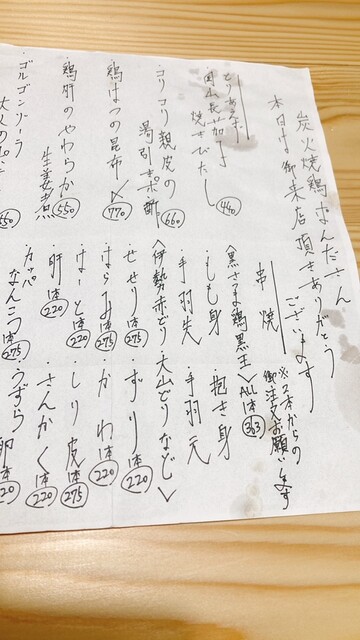 炭火焼鶏はんださん
本日は御来店頂きありがとう
ございます
とりあえず
岡山長茄子
焼きびたし 440
コリコリ親皮の
湯引きポン酢 660
鶏はつの昆布〆 770
鶏肝のやわらか
生姜煮 550
ゴルゴンゾーラ
550
串焼
※2本からの
御注文お願いします
〈黒さつま鶏黒王〉ALL 1本 363
もも身
抱き身
手羽先
手羽元
〈伊勢赤どり・大山どりなど〉
せせり 1本 275
ずり 1本 220
はらみ 1本 275
かわ 1本 220
はーと 1本 220
しり皮 1本 275
肝 1本 220
さんかく 1本 220
カッパ
なんこつ 1本 275
うずら卵 1本